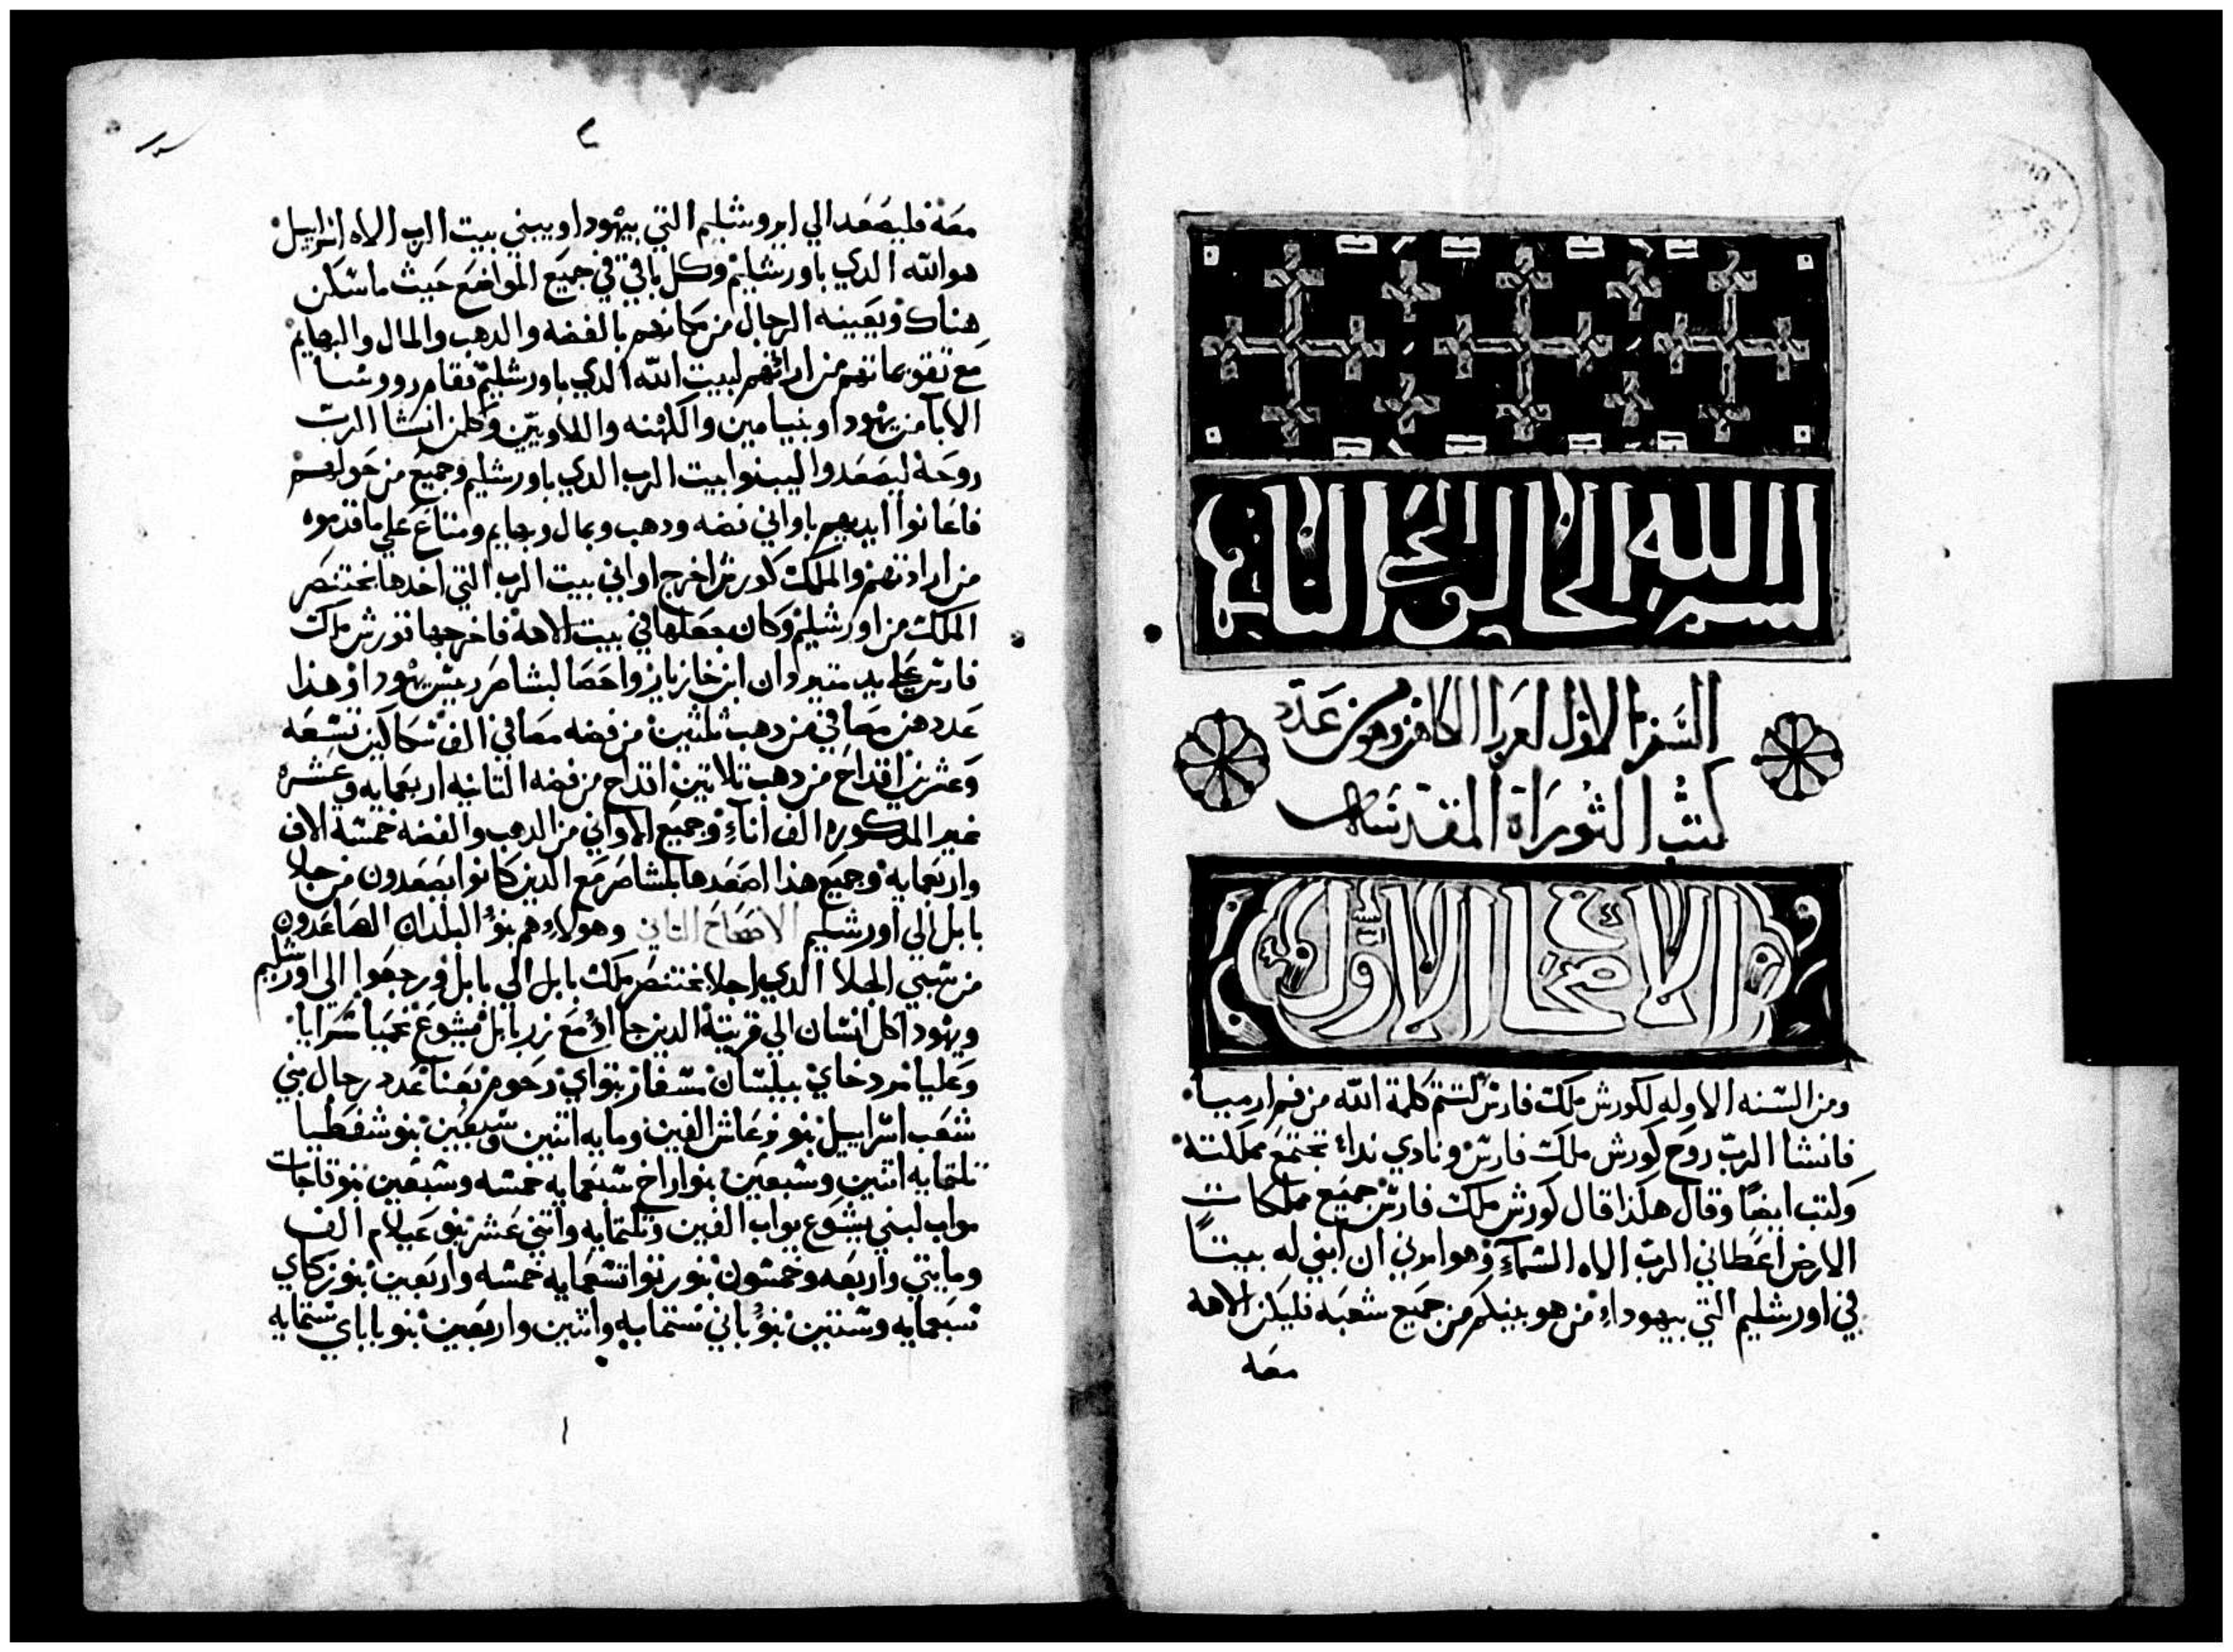 بسم الله الخالق الحي الناطق
السفر الاول لعزرا الكاهن وهو من عدد
كتب التوراة المقدسه
الاصحاح الاول
ومن السنه الاوله لكورش ملك فارس لتتم كلمة الله من فم ارميا
فانشا الرب روح كورش ملك فارس ونادي نداء بجتمع مملكته
وكتب ايضا وقال هكذا قال كورش ملك فارس جميع مملكات
الارض اعطاني الرب الاه السماء وهو امرني ان ابني له بيتا
في اورشليم التي بيهوداء من هو بينكم من جميع شعبه فليكن الاهه
معه
معه فليصعد الي ايروشليم التي بيهودا ويبني بيت الرب الاه اسراييل
هو الله الدي باورشليم وكل باقي في جميع المواضع حيث ما سكن
هناك ويعينه الرجال من مكانهم بالفضه والدهب والمال والبهايم
مع تقوماتهم من ارادتهم لبيت الله الدي باورشليم فقام رووسا
الابا من يهودا وبنيامين والكهنه واللاويين وكلمن انشا الرب
روحه ليصعدوا ليبنوا بيت الرب الدي باورشليم وجميع من حولهم
فاعانوا ايديهم باواني فضه ودهب وبمال وبهايم ومتاع علي ما قدموه
من ارادتهم والملك كورش اخرج اواني بيت الرب التي اخدها بختنصر
الملك من اورشليم وكان جعلها في بيت الاهه فاخرجها قورش ملك
فارس علي يد متيردان ابن خازباز واحصا لبشاصر ريس يهودا وهذا
عددهن مصافي من دهب تلتين من فضه مصافي الف سكاكين تسعه
وعشرين اقداح من دهب تلاتين اقداح من فضه التانيه اربعمايه وعشره
غير المدكوره الف اناء وجميع الاواني من الدهب والفضه خمسة الاف
واربعمايه وجميع هذا اصعدها بلشاصر مع الدين كانوا يصعدون من جلا
بابل الي اورشليم الاصحاح التاني وهولاء هم بنو البلدان الصاعدون
من سبي الجلا الدي اجلا بختنصر ملك بابل الي بابل ورجعوا الي اورشليم
ويهودا كل انسان الي قريته الدين جااو مع زربابل يشوع نحميا سرايا
وعليا مردخاي بيلسان مسفاز بتواي رحوم بعنا عدد رجال بني
شعب اسراييل بنو فرعاش الفين ومايه اتنين وسبعين بنو شفطيا
تلتمايه اتنين وسبعين بنو اراخ سبعمايه خمسه وسبعين بنو قاحات
مواب لبني يشوع يواب الفين وتلتمايه واتني عشر بنو عيلام الف
ومايتي واربعه وخمسون بنو رتوا تسعمايه خمسه واربعين بنو زكاي
سبعمايه وستين بنو باني ستمايه واتنين واربعين بنو باباي ستمايه